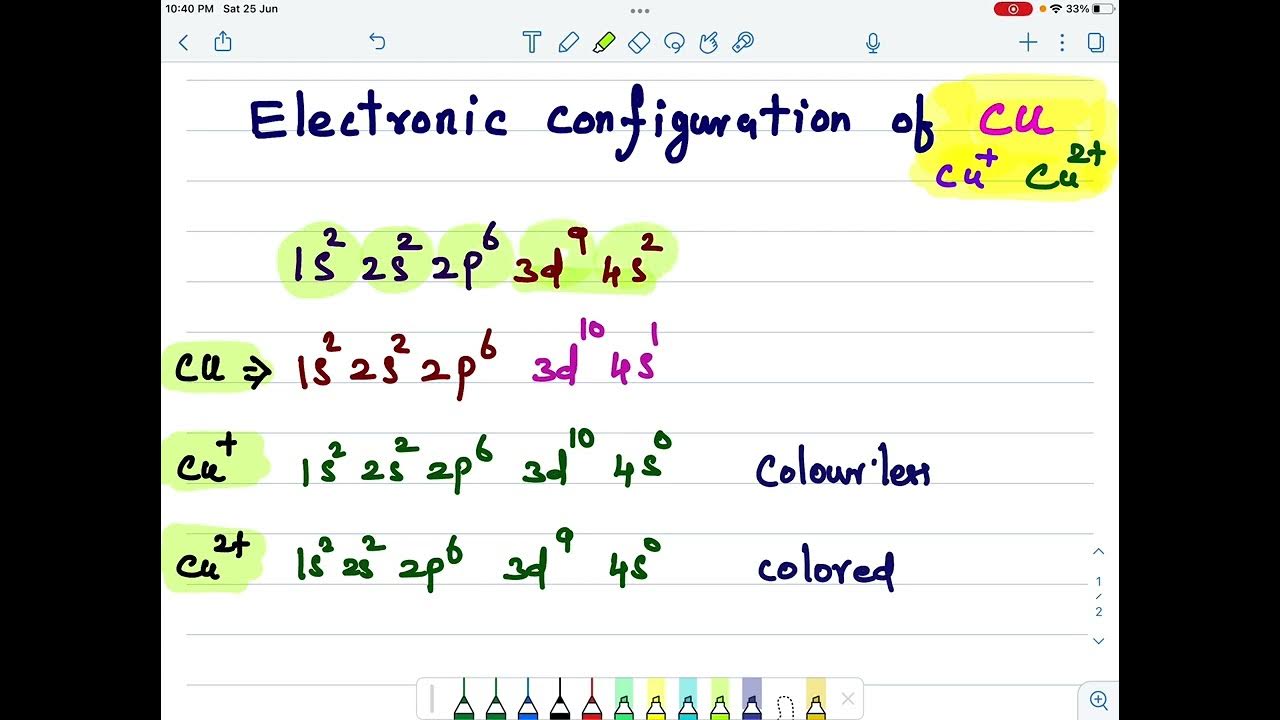 10:40 PM Sat 25 Jun 33%
Electronic configuration of Cu
Cu⁺ Cu²⁺
1s² 2s² 2p⁶ 3d⁹ 4s²
Cu ⇒ 1s² 2s² 2p⁶ 3d¹⁰ 4s¹
Cu⁺ 1s² 2s² 2p⁶ 3d¹⁰ 4s⁰ Colourless
Cu²⁺ 1s² 2s² 2p⁶ 3d⁹ 4s⁰ colored
1
/
2